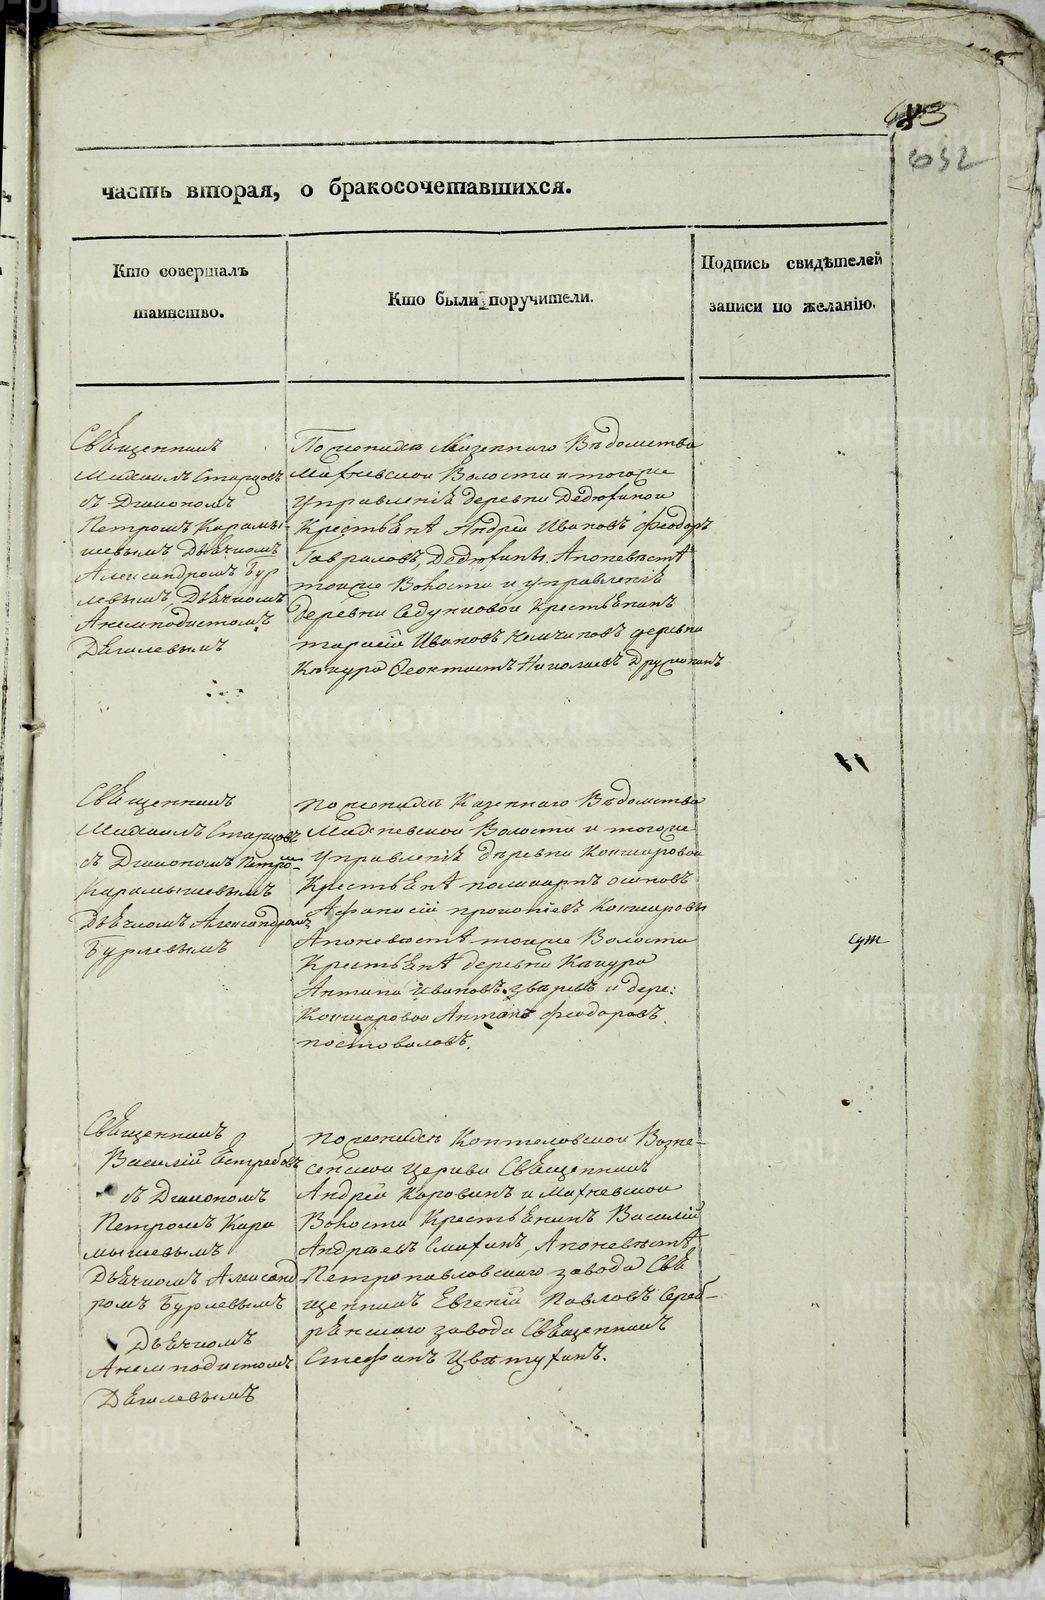 83
632
часть вторая, о бракосочетавшихся.
Кто совершалъ
таинство.
Кто были поручители.
Подпись свидѣтелей
записи по желанію.
Священникъ
Михаилъ Старцовъ
съ Диакономъ
Петромъ Карамы-
шевымъ Дьячкомъ
Александромъ Бур
левымъ, Дьячкомъ
Анемподистомъ
Дягилевымъ
По женихѣ Казеннаго Вѣдомства
Махневской Волости и тогоже
Управленія деревни Дедюхиной
Крестьяне Андрей Ивановъ Феодоръ
Гавриловъ, Дедюхины. А по невѣстѣ
тоиже Волости и управленія
деревни Крестьянинъ
Ивановъ деревни
Кокуря Феоктистъ Николаевъ
Священникъ
Михаилъ Старцовъ
съ Диакономъ Петро-
Карамышевымъ
Дьячкомъ Александромъ
Бурлевымъ
по женихѣ Казеннаго Вѣдомства
Махневской Волости и тогоже
Управленія деревни Кокшаровой
Крестьяне поликарпъ осиповъ
Афанасій прокопіевъ Кокшаровы
А по невѣстѣ тоиже Волости
Крестьяне деревни Кокуря
Антипа Ивановъ и дере:
Кокшаровой Антонъ Феодоровъ
постоваловъ.
Священникъ
Василій Ястребовъ
съ Диакономъ
Петромъ Кара
мышевымъ
Дьячкомъ Александ
ромъ Бурлевымъ
Дьячкомъ
Анемподистомъ
Дягилевымъ
по женихѣ Коптеловской Возне-
сенской церкви Священникъ
Андрей Коровинъ и Махневской
Волости Крестьянинъ Василій
Андреевъ, А по невѣстѣ
Петропавловскаго завода Свя
щенникъ Евгеній Павловъ Сереб-
рянскаго завода Священникъ
Стефанъ Цветухинъ.
METRIKI.GASO-URAL.RU